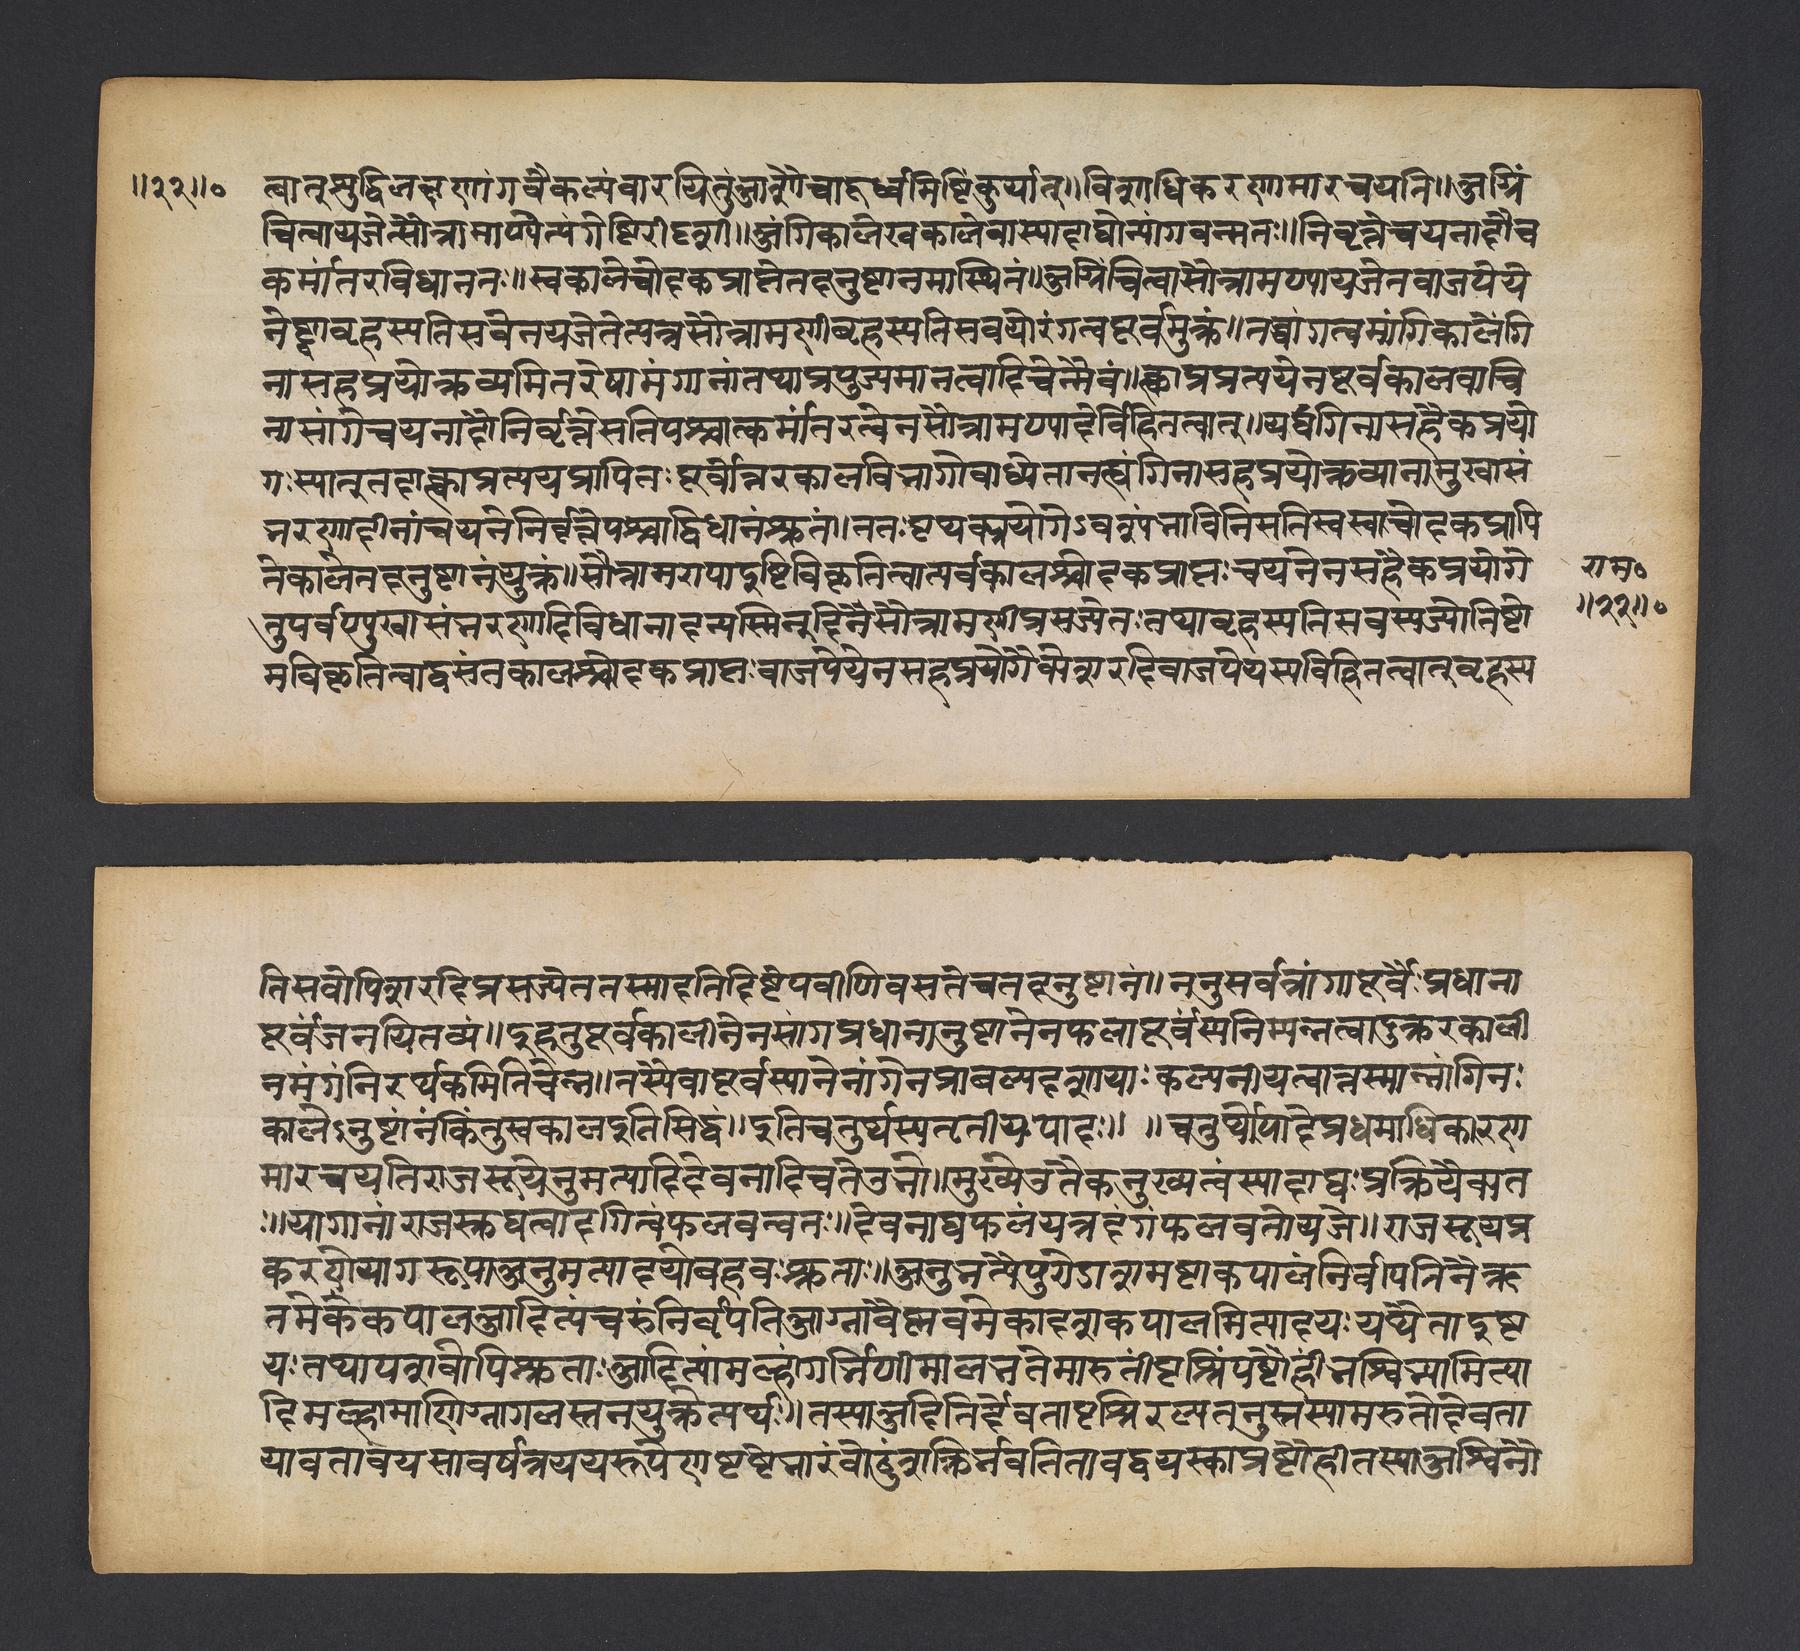 ॥२२॥०
त्वात् शुद्धिलक्षणांगवैकल्यंवारयितुंआशौचादूर्ध्वमिष्टिंकुर्यात्॥विंशाधिकरणमारचयति॥अग्निं
चित्वायजेत्सौत्रामण्येत्यंगेष्टिरीदृशी॥अंगिकालेस्वकालेवास्यादाद्योन्यांगवन्मतः॥निवृत्तेचयनादौच
कर्मांतरविधानतः॥स्वकालेचोदकप्राप्तेतदनुष्टानमास्थितं॥अग्निंचित्वासौत्रामण्यायजेतवाजपेये
नेष्ट्वाबृहस्पतिसवेनयजेतेत्यत्रसौत्रामणीबृहस्पतिसवयोरंगत्वंपूर्वमुक्तं॥तच्चांगत्वमंगिकालेंगि
नासहप्रयोक्तव्यमितरेषामंगानांतथाप्रयुज्यमानत्वादितिचेन्मैवं॥क्त्वाप्रत्ययेनपूर्वकालवाचि
नासांगेचयनादौनिर्वृत्तेसतिपश्चात्कर्मांतरत्वेनसौत्रामण्यादेर्विहितत्वात्॥यद्यंगिनासहैकप्रयो
गःस्यात्तदाक्त्वाप्रत्ययप्रापितःपूर्वोत्तरकालविभागोबाध्येतानत्वंगिनासहप्रयोक्तव्यानामुखासं
भरणादीनांचयनेनिर्वृत्तेपश्चाद्विधानंश्रुतं॥ततःपृथक्प्रयोगेऽवश्यंभाविनिसतिस्वस्वचोदकप्रापि
तेकालेतदनुष्टानंयुक्तं॥सौत्रामण्याइष्टिविकृतित्वात्पर्वकालश्चोदकप्राप्तःचयनेनसहैकप्रयोगे
तुपर्वण्युखासंभरणादिविधानादन्यस्मिन्नहनिसौत्रामणीप्रसज्येततथाबृहस्पतिसवस्यज्योतिष्टो
मविकृतित्वाद्वसंतकालश्चोदकप्राप्तःवाजपेयेनसहप्रयोगेशरदिवाजपेयस्यविहितत्वात्बृहस्प
राम०
॥२२॥०
तिसवोपिशरदिप्रसज्येततस्मादतिदिष्टेपर्वणिवसंतेचतदनुष्टानं॥ननुसर्वत्रांगापूर्वैःप्रधाना
पूर्वंजनयितव्यं॥इहतुपूर्वकालीनेनसांगप्रधानानुष्टानेनफलापूर्वस्यनिष्पन्नत्वादुत्तरकाली
नमंगंनिरर्थकमितिचेन्न॥तस्यैवापूर्वस्यानेनांगेनप्राबल्यदशायाःकल्पनीयत्वात्तस्मान्नांगिनः
कालेऽनुष्टानंकिंतुस्वकालइतिसिद्धं॥इतिचतुर्थस्यतृतीयःपादः॥ ॥चतुर्थेपादेप्रथमाधिकरण
मारचयतिराजसूयेनुमत्यादिदेवनादिचतेउभे॥मुख्येउतैकमुख्यत्वंस्यादाद्यःप्रक्रियैक्यत
ः॥यागानांराजसूयत्वादंगित्वंफलवत्वतः॥देवनाद्यफलंयत्तदंगंफलवतोयजेः॥राजसूयप्र
करणेयागरूपाअनुमत्यादयोबहवःश्रुताः॥अनुमत्यैपुरोडाशमष्टाकपालंनिर्वपतिनैर्ऋ
तमेककपालआदित्यंचरुंनिर्वपतिआग्नावैष्णवमेकादशकपालमित्यादयःयथैताइष्ट
यःतथापशवोपिश्रुताःआदित्यांमल्हांगर्भिणीमालभतेमारुतींपृश्निंपष्ठौहींमश्विभ्यामित्या
दिमल्हामणिग्नागलस्तनयुक्तेत्यर्थः॥तस्याअदितिर्देवतापृश्निरल्पतनुस्तस्यामरुतोदेवता
यावतावयसावर्षत्रययरूपेणपृष्टेभारंवोढुंशक्तिर्भवतितावद्वयस्काप्रष्टौहीतस्याअश्विनौ